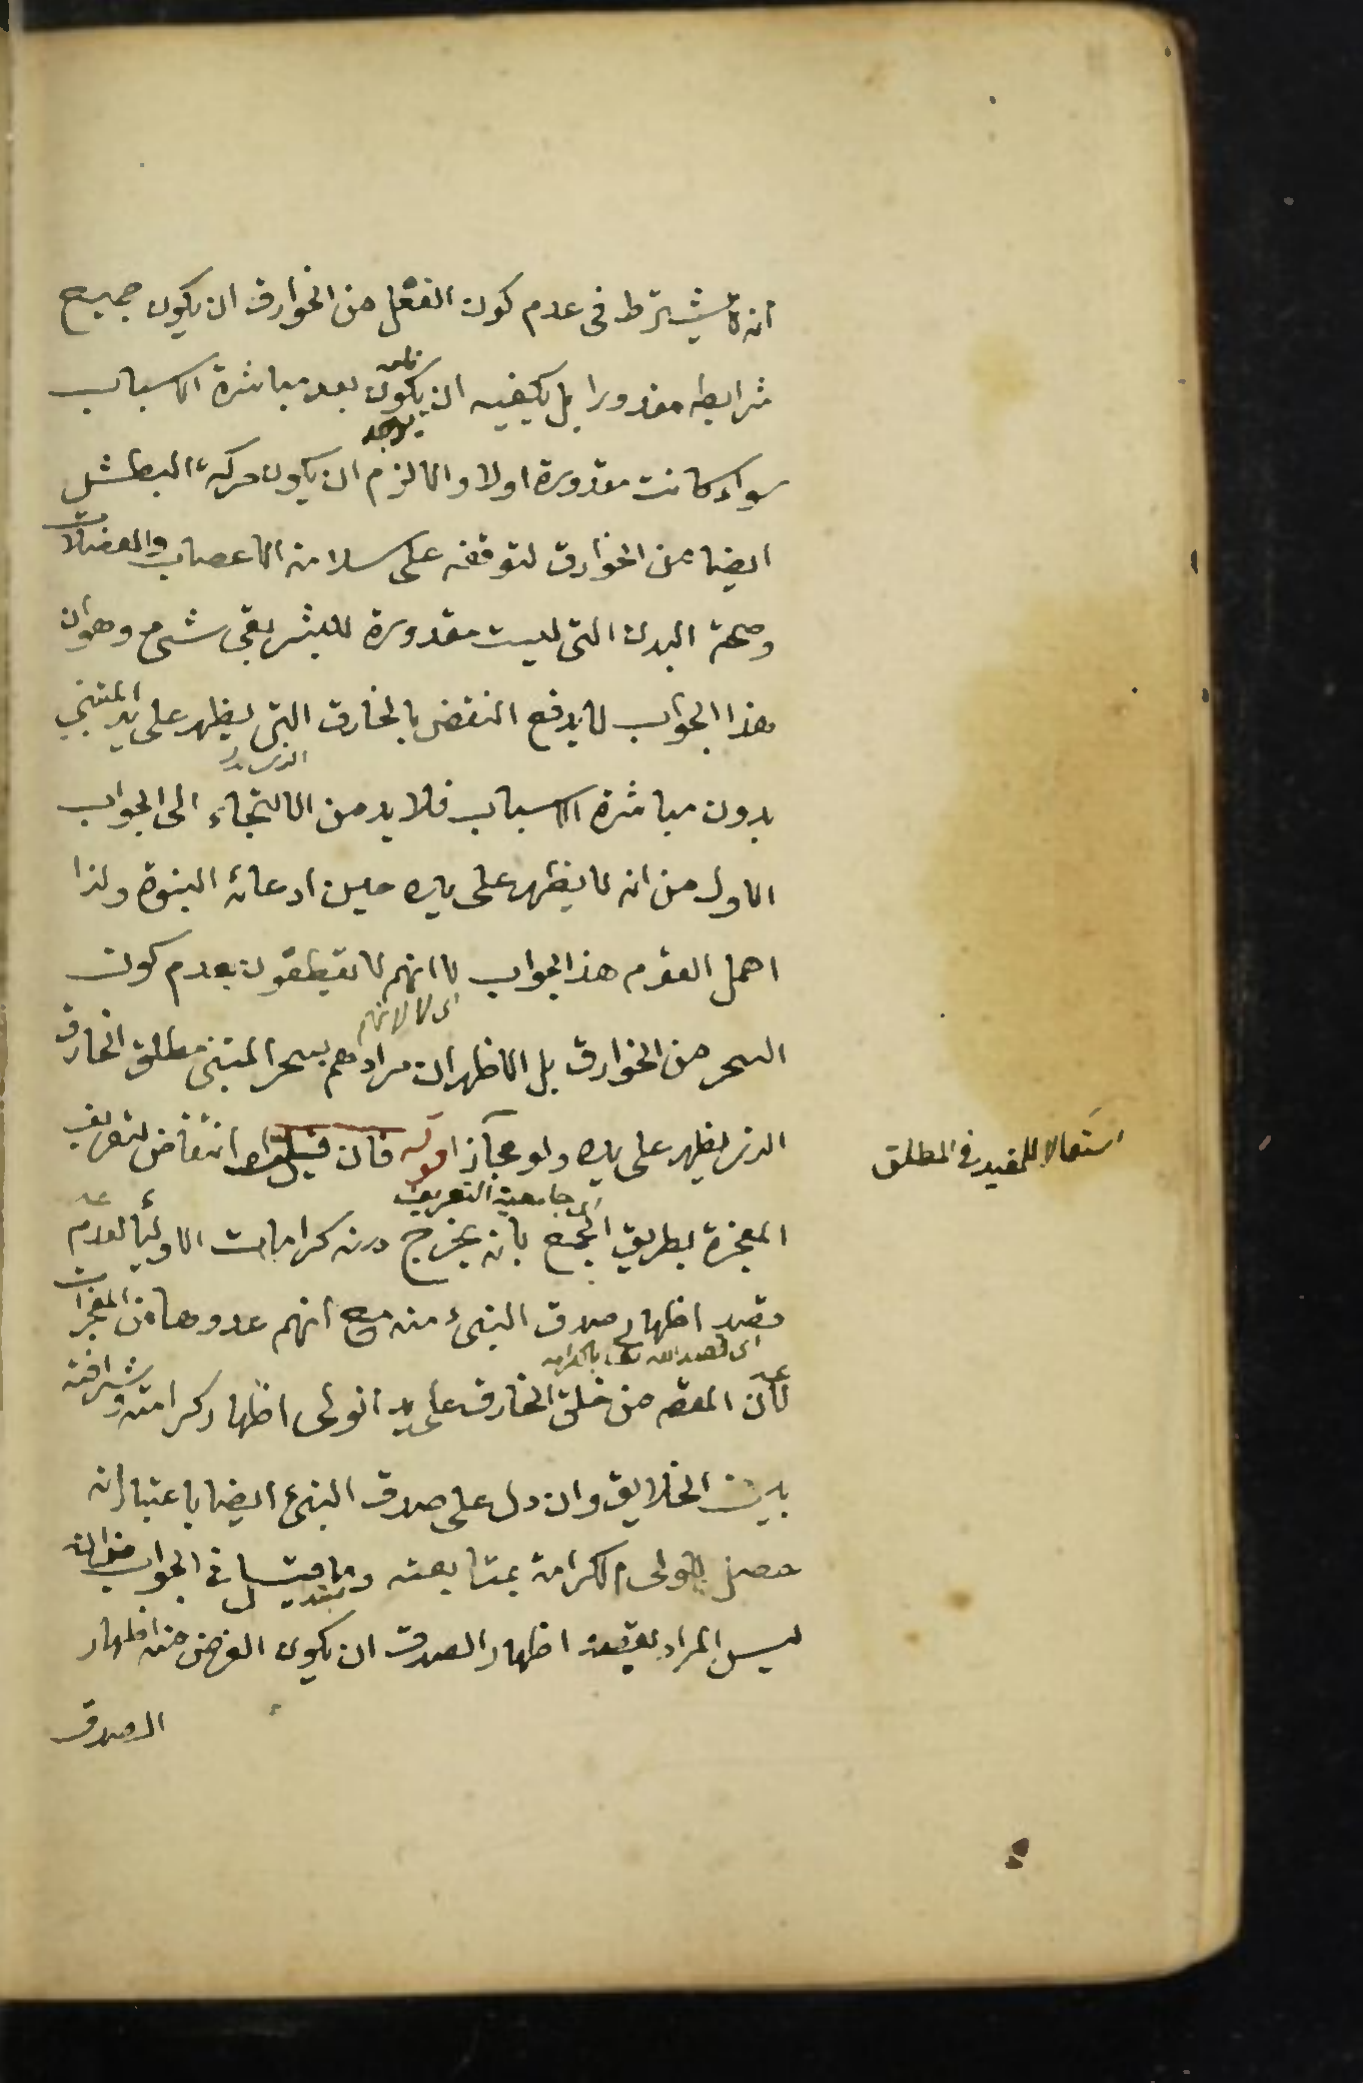 انه لا يشترط فى عدم كون الفعل من الخوارق ان يكون جميع
شرايطه مقدورا بل يكفيه ان يكون بعد مباشرة الاسباب
سواء كانت مقدورة اولا والا لزم ان يكون حركة البطش
ايضا من الخوارق لتوقفه على سلامة الاعصاب والعضلات
وصحة البدن التى ليست مقدورة للبشر بقى شئ وهو ان
هذا الجواب لا يدفع النقض بالخارق التى يظهر على يد المتنبى
بدون مباشرة الاسباب فلا بد من الالتجاء الى الجواب
الاول من انه لا يظهر على يده حين ادعائه النبوة ولذا
اهمل القوم هذا الجواب لا انهم لا يعتقدون بعدم كون
السحر من الخوارق بل الاظهر ان مرادهم بسحر المتنبى مطلق الخارق
الذى يظهر على يده ولو مجازا قوله فان قيل انتقاض لتعريف
استعمالا للمقيد فى المطلق
اى جامعية التعريف
المعجزة بطريق الجمع بانه يخرج منه كرامات الاولياء لعدم
قصد اظهار صدق النبى منه مع انهم عدوها من المعجزات
اى قصد الله تعالى بالكرامة
لان المقصد من خلق الخارق على يد الولى اظهار كرامته وشرافته
بين الخلايق وان دل على صدق النبى ايضا باعتبار انه
حصل للولى الكرامة بمتابعته وما قيل فى الجواب من انه
ليس المراد بقصد اظهار الصدق ان يكون الغرض منه اظهار
الصدق